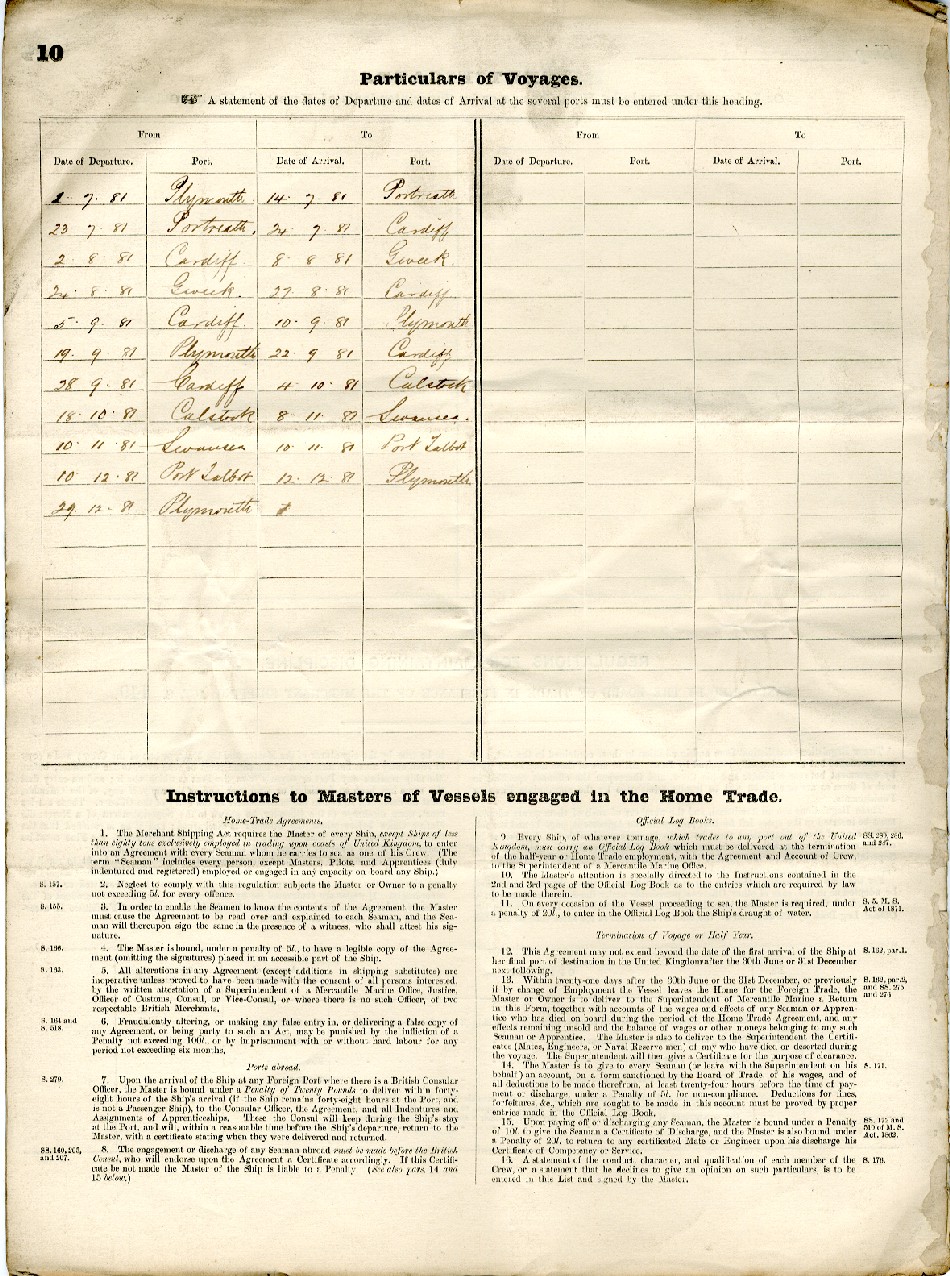 10
Particulars of Voyages.
A statement of the dates of Departure and dates of Arrival at the several ports must be entered under this heading.
From To From To
Date of Departure. Port. Date of Arrival. Port. Date of Departure. Port. Date of Arrival. Port.
1 · 7 · 81 Plymouth 14 · 7 81 Portreath
23 7 · 81 Portreath, 24 · 7 81 Cardiff
2 · 8 · 81 Cardiff 8 · 8 81 Gweek
24 · 8 · 81 Gweek. 27 · 8 · 81 Cardiff
5 · 9 · 81 Cardiff 10 · 9 · 81 Plymouth
19 · 9 81 Plymouth 22 9 81 Cardiff
28 9 · 81 Cardiff 4 · 10 · 81 Calstock
18 · 10 · 81 Calstock 8 · 11 · 81 Swansea.
10 · 11 · 81 Swansea 10 · 11 · 81 Port Talbot
10 12 · 81 Port Talbot 12 · 12 81 Plymouth
29 12 · 81 Plymouth
Instructions to Masters of Vessels engaged in the Home Trade.
Home-Trade Agreements.
1. The Merchant Shipping Act requires the Master of every Ship, except Ships of less
than eighty tons exclusively employed in trading upon coasts of United Kingdom, to enter
into an Agreement with every Seaman whom he carries to sea as one of his Crew. (The
term "Seaman" includes every person except Masters, Pilots, and Apprentices (duly
indentured and registered) employed or engaged in any capacity on board any Ship.)
S. 157. 2. Neglect to comply with this regulation subjects the Master or Owner to a penalty
not exceeding 5l. for every offence.
S. 155. 3. In order to enable the Seamen to know the contents of the Agreement, the Master
must cause the Agreement to be read over and explained to each Seaman, and the Sea-
man will thereupon sign the same in the presence of a witness, who shall attest his sig-
nature.
S. 166. 4. The Master is bound, under a penalty of 5l., to have a legible copy of the Agree-
ment (omitting the signatures) placed in an accessible part of the Ship.
S. 163. 5. All alterations in any Agreement (except additions in shipping substitutes) are
inoperative unless proved to have been made with the consent of all persons interested,
by the written attestation of a Superintendent of a Mercantile Marine Office, Justice,
Officer of Customs, Consul, or Vice-Consul, or where there is no such Officer, of two
respectable British Merchants.
S. 164 and
S. 518. 6. Fraudulently altering, or making any false entry in, or delivering a false copy of
any Agreement, or being party to such an Act, may be punished by the infliction of a
Penalty not exceeding 100l. or by imprisonment with or without hard labour for any
period not exceeding six months.
Ports abroad.
S. 279. 7. Upon the arrival of the Ship at any Foreign Port where there is a British Consular
Officer, the Master is bound under a Penalty of Twenty Pounds to deliver with n forty-
eight hours of the Ship's arrival (if the Ship remains forty-eight hours at the Port, and
is not a Passenger Ship), to the Consular Officer, the Agreement, and all Indentures and
Assignments of Apprenticeships. These the Consul will keep during the Ship's stay
at the Port, and will, within a reasonable time before the Ship's departure, return to the
Master, with a certificate stating when they were delivered and returned.
SS. 140, 205,
and 207. 8. The engagement or discharge of any Seaman abroad must be made before the British
Consul, who will endorse upon the Agreement a Certificate accordingly. If this Certifi-
cate be not made the Master of the Ship is liable to a Penalty (See also pars. 14 and
15 below.)
Official Log Books.
9. Every Ship, of whatever tonnage, which trades to any port out of the United
Kingdom, must carry an Official Log Book which must be delivered at the termination
of the half-year or Home Trade employment, with the Agreement and Account of Crew,
to the Superintendent of a Mercantile Marine Office.
10. The Master's attention is specially directed to the Instructions contained in the
2nd and 3rd pages of the Official Log Book as to the entries which are required by law
to be made therein.
11. On every occasion of the Vessel proceeding to sea, the Master is required, under
a penalty of 20l., to enter in the Official Log Book the Ship's draught of water.
S. 5. M. S.
Act of 1871.
Termination of Voyage or Half Year.
12. This Agreement may not extend beyond the date of the first arrival of the Ship at
her final port of destination in the United Kingdom after the 30th June or 31st December
next following.
13. Within twenty-one days after the 30th June or the 31st December, or previously
if by change of Employment the Vessel leaves the Home for the Foreign Trade, the
Master or Owner is to deliver to the Superintendent of Mercantile Marine a Return
in this Form, together with accounts of the wages and effects of any Seaman or Appren-
tice who has died on board during the period of the Home Trade Agreement, and any
effects remaining unsold and the balance of wages or other moneys belonging to any such
Seaman or Apprentice. The Master is also to deliver to the Superintendent the Certifi-
cates (Mates, Engineers, or Naval Reserve men) of any who have died or deserted during
the voyage. The Superintendent will then give a Certificate for the purpose of clearance.
14. The Master is to give to every Seaman (or leave with the Superintendent on his
behalf) an account, on a form sanctioned by the Board of Trade of his wages, and of
all deductions to be made therefrom, at least twenty-four hours before the time of pay-
ment or discharge, under a Penalty of 5l. for non-compliance. Deductions for fines,
forfeitures, &c., which are sought to be made in this account must be proved by proper
entries made in the Official Log Book.
S. 171.
15. Upon paying off or discharging any Seaman, the Master is bound under a Penalty
of 10l. to give the Seaman a Certificate of Discharge, and the Master is also bound under
a Penalty of 20l. to return to any certificated Mate or Engineer upon his discharge his
Certificate of Competency or Service.
16. A statement of the conduct, character, and qualification of each member of the
Crew, or a statement that he declines to give an opinion on such particulars, is to be
entered in this List and signed by the Master.
S. 176.